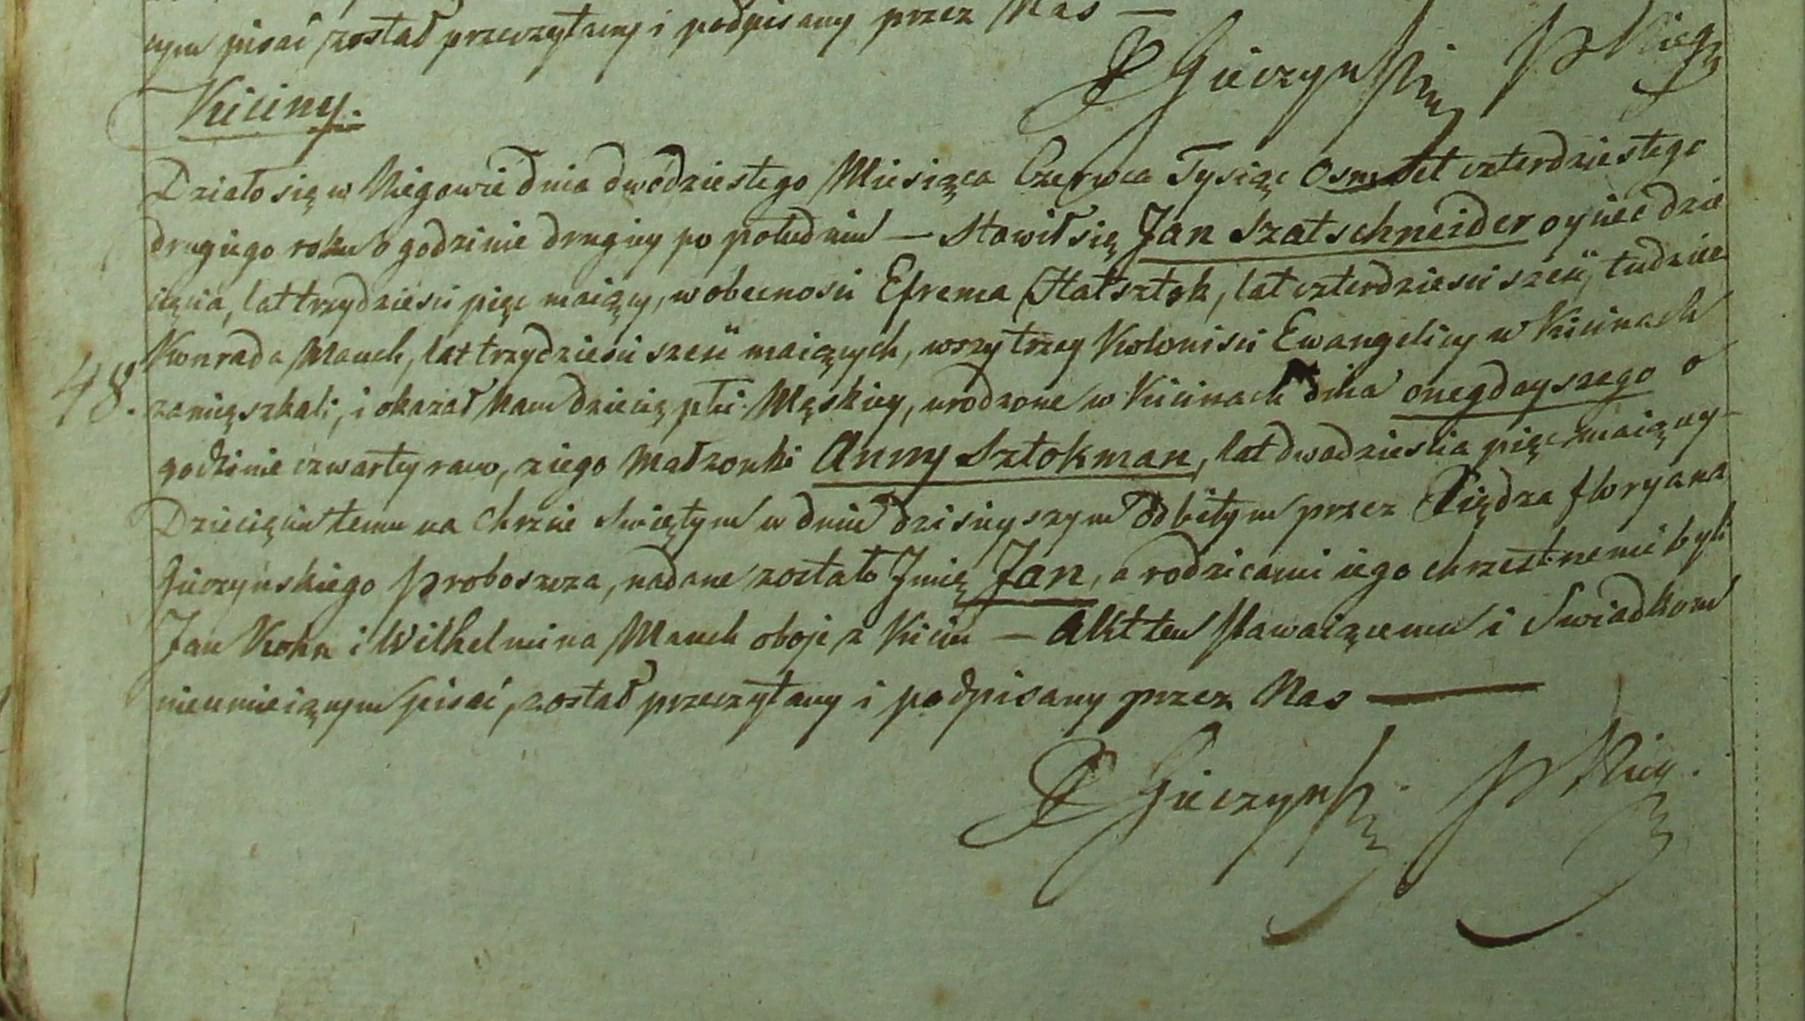 cym pisać został przeczytany i podpisany przez Nas —
X Gieczyński
Kiciny.
Działo się w Niegowie dnia dwódziestego Miesiąca Czerwca Tysiąc Osmset czterdziestego
drugiego roku o godzinie drugiey po południu — Stawił się Jan Szatschneider oyciec dzie
cięcia, lat trzydzieści pięc maiący, w obecności Efrema Hatsztok, lat czterdzieści sześć, tudzież
Konrada Mauch, lat trzydzieści sześć maiących, wszy trzey Koloniści Ewangelicy w Kicinach
48. zamięszkali, i okazał Nam dziecię płci Męskiey, urodzone w Kicinach dnia onegdayszego o
godzinie czwartey rano, z iego Małżonki Anny Sztokman, lat dwadzieścia pięc maiącey –
Dziecięciu temu na Chrzcie Swiętym w dniu dzisieyszym odbitym przez Xiędza Floryana
Gieczyńskiego Proboszcza, nadane zostało Jmię Jan, a rodzicami iego chrzestnemi byli
Jan Kohn i Wilhelmina Mauch oboje z Kicin — Akt ten stawaiącemu i Swiadkom
nieumieiącym pisać, został przeczytany i podpisany przez Nas —
X Gieczyński